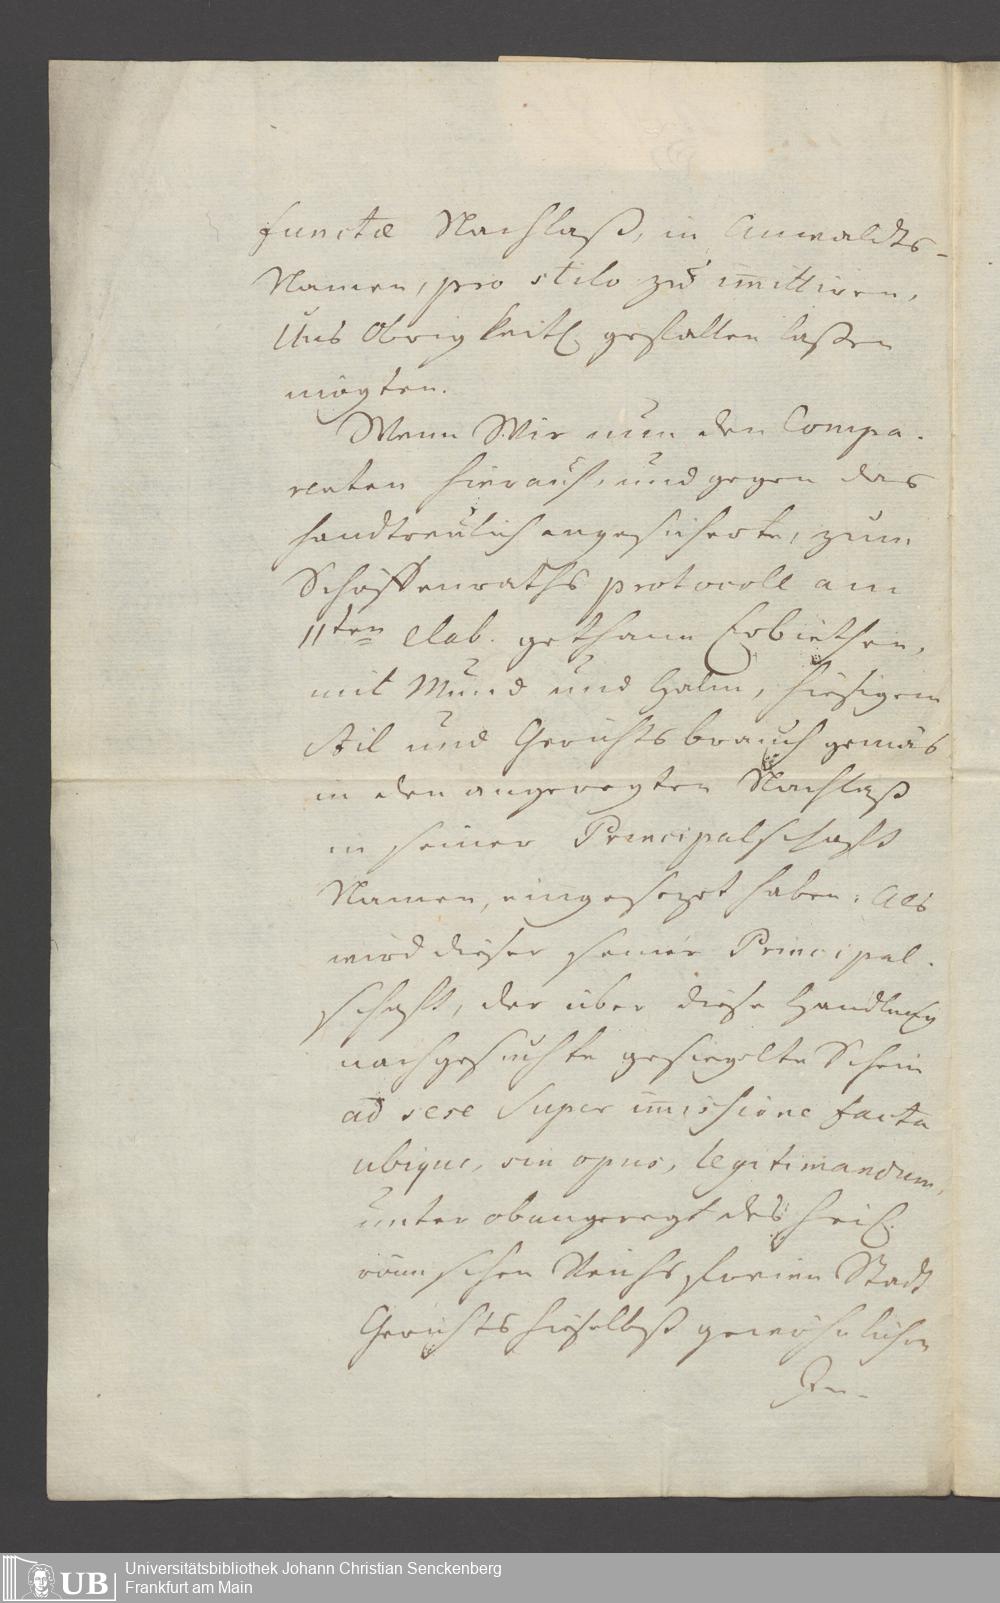 functæ Nachlaß, in Anwaldts-
Namen, pro stilo zu im̅ittiren,
Uns Obrigkeitl. gefallen laßen
mögten.
Wenn Wir nun den Compa-
renten hierauf, und gegen das
handtreulich angesicherte, zum
Schöffenraths protocoll am
11ten elab. gethane Erbiethen,
mit Mund und Halm, hiesigem
Stil und Gerichtsbrauch gemäs
in den angeregten Nachlaß
in seiner Principalschafft
Namen, eingesezt haben: Als
wird dieser seiner Principal-
schafft, der über diese Handlung
nachgesuchte gesiegelte Schein
ad sese super im̅issione facta
ubique, sin opus, legitimandum,
unter obangeregt des heil.
römischen Reichs freien Stadt
Gerichts hieselbst gewöhnlichen
In-
Universitätsbibliothek Johann Christian Senckenberg
Frankfurt am Main
UB